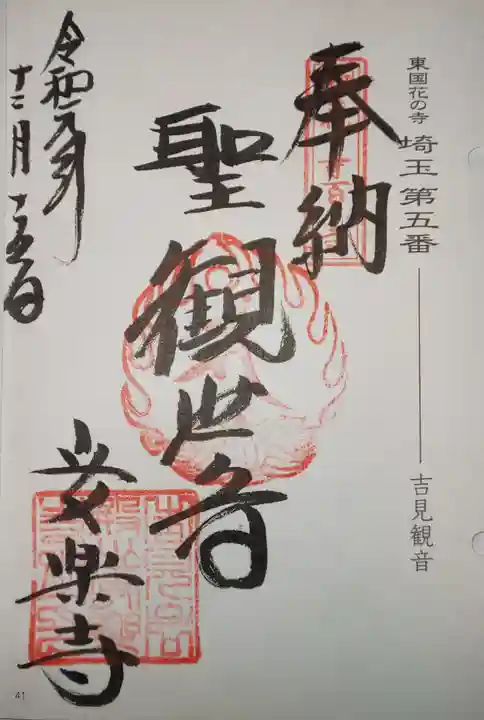 東国花の寺 埼玉第五番 ―― 吉見観音
奉納
聖観世音
安楽寺
令和元年
十二月一五日
41